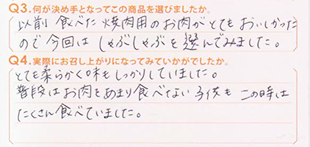 Q3.何が決め手となってこの商品を選びましたか。
以前 食べた 焼肉用のお肉がとてもおいしかった
ので今回は しゃぶしゃぶを選んでみました。
Q4.実際にお召し上がりになってみていかがでしたか。
とても柔らかく味もしっかりしていました。
普段はお肉をあまり食べない子供も この時は
たくさん食べていました。